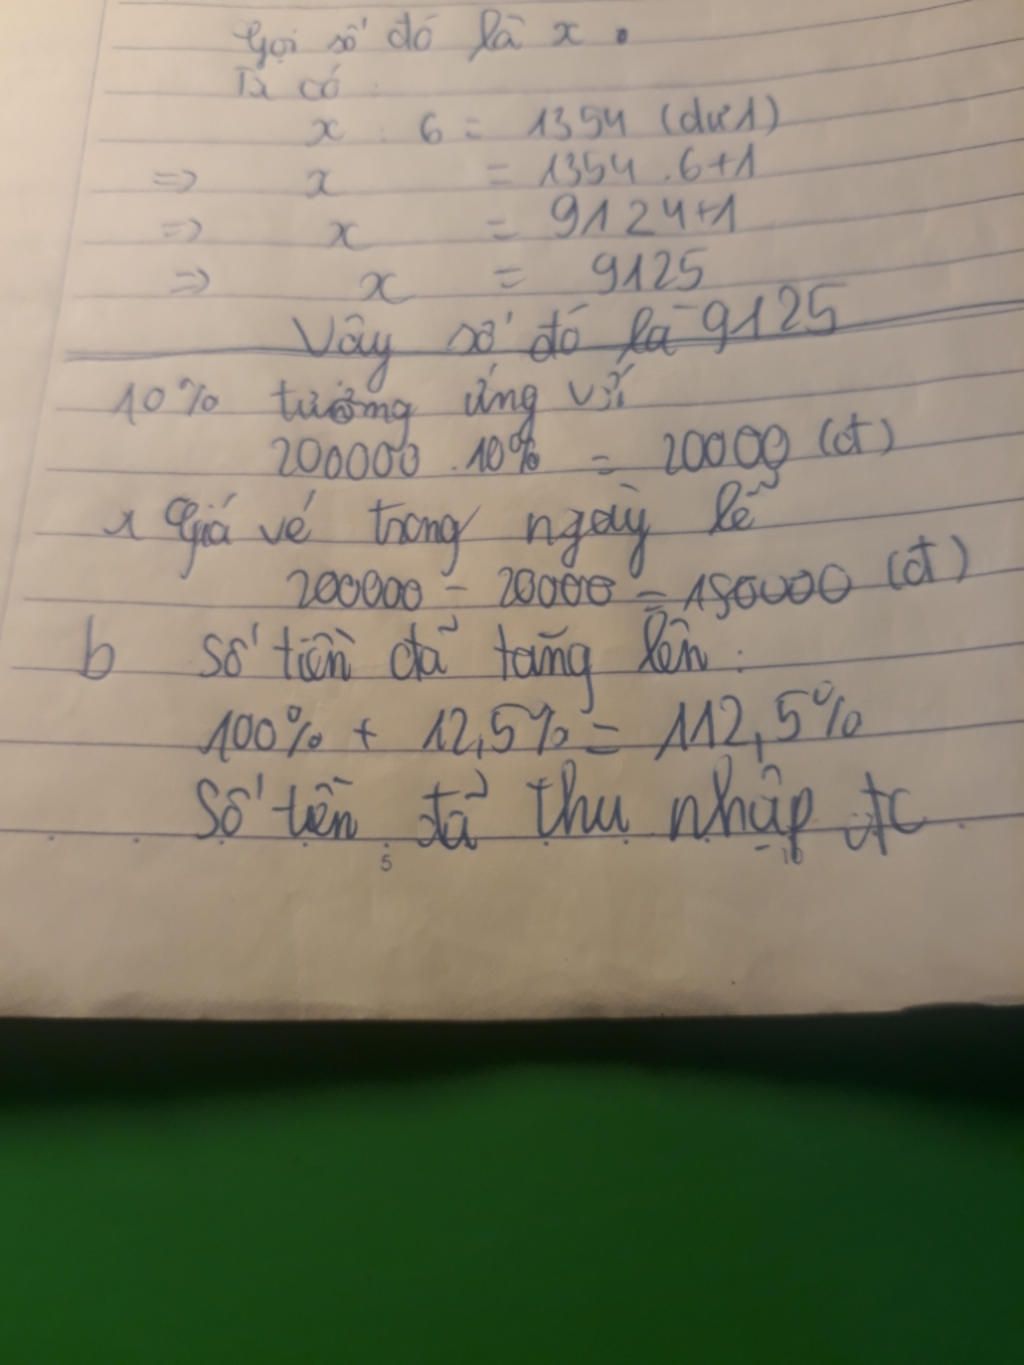 Gọi số đó là x.
Ta có:
x : 6 = 1354 (dư 1)
=> x = 1354 . 6+1
=> x = 9124+1
=> x = 9125
Vậy số đó là 9125
10% tương ứng với
200000 . 10% = 20000 (đ)
Giá vé trong ngày lễ
200000 - 20000 = 180000 (đ)
b Số tiền đã tăng lên :
100% + 12,5% = 112,5%
Số tiền đã thu nhập đc
5